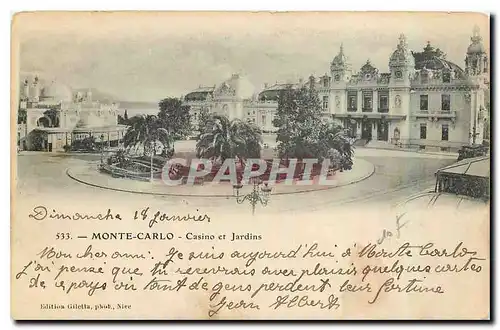 CPAPHIL
Dimancha 18 janvier
533. — MONTE-CARLO - Casino et Jardins
Mon cher ami. Je suis aujourd'hui à Monte Carlo
J'ai pensé que tu recevrais avec plaisir quelques cartes
de ce pays où tant de gens perdent leur fortune
Jean Albert
Edition Giletta, phot., Nice